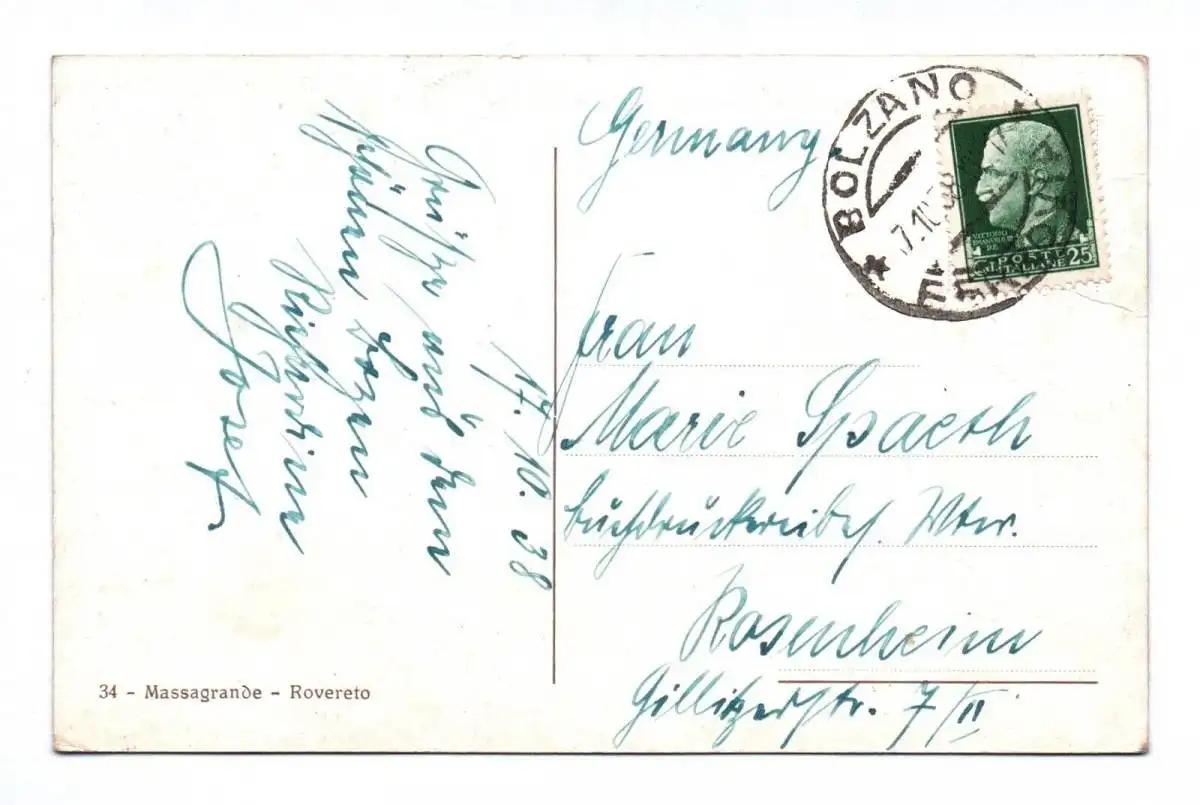 17. 10. 38
Grüße aus dem
schönen Bozen
Josef
Germany
BOLZANO
FERROVIA
VITTORIO
EMANUELE III
RE
POSTE
ITALIANE
C.mi 25
Frau
Marie Spaeth
Buchdruckereibes. Wtw.
Rosenheim
Gillitzerstr. 7/II
34 - Massagrande - Rovereto